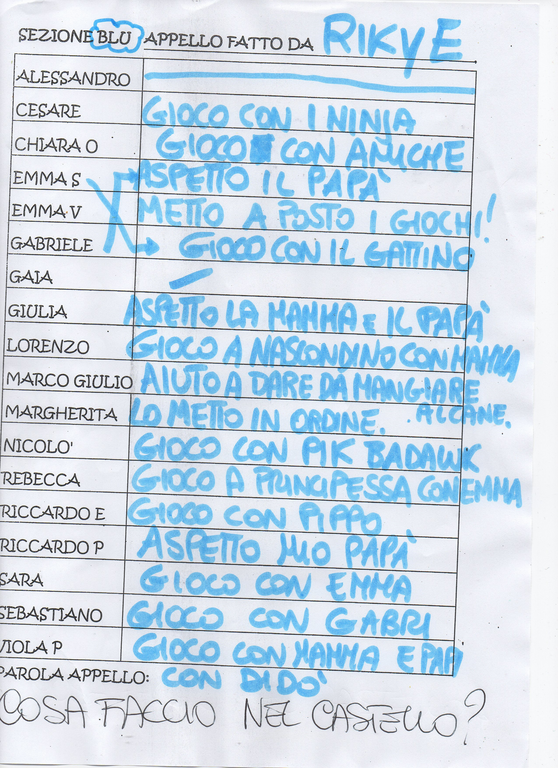 SEZIONE BLU APPELLO FATTO DA RIKY E
ALESSANDRO
CESARE GIOCO CON I NINJA
CHIARA O GIOCO CON AMICHE
EMMA S ASPETTO IL PAPÀ
EMMA V METTO A POSTO I GIOCHI!
GABRIELE GIOCO CON IL GATTINO
GAIA
GIULIA ASPETTO LA MAMMA E IL PAPÀ
LORENZO GIOCO A NASCONDINO CON MAMMA
MARCO GIULIO AIUTO A DARE DA MANGIARE
AL CANE.
MARGHERITA LO METTO IN ORDINE.
NICOLO' GIOCO CON PIK BADAWK
REBECCA GIOCO A PRINCIPESSA CON EMMA
RICCARDO E GIOCO CON PIPPO
RICCARDO P ASPETTO MIO PAPÀ
SARA GIOCO CON EMMA
SEBASTIANO GIOCO CON GABRI
VIOLA P GIOCO CON MAMMA E PAPI
PAROLA APPELLO: CON DIDÒ
COSA FACCIO NEL CASTELLO?